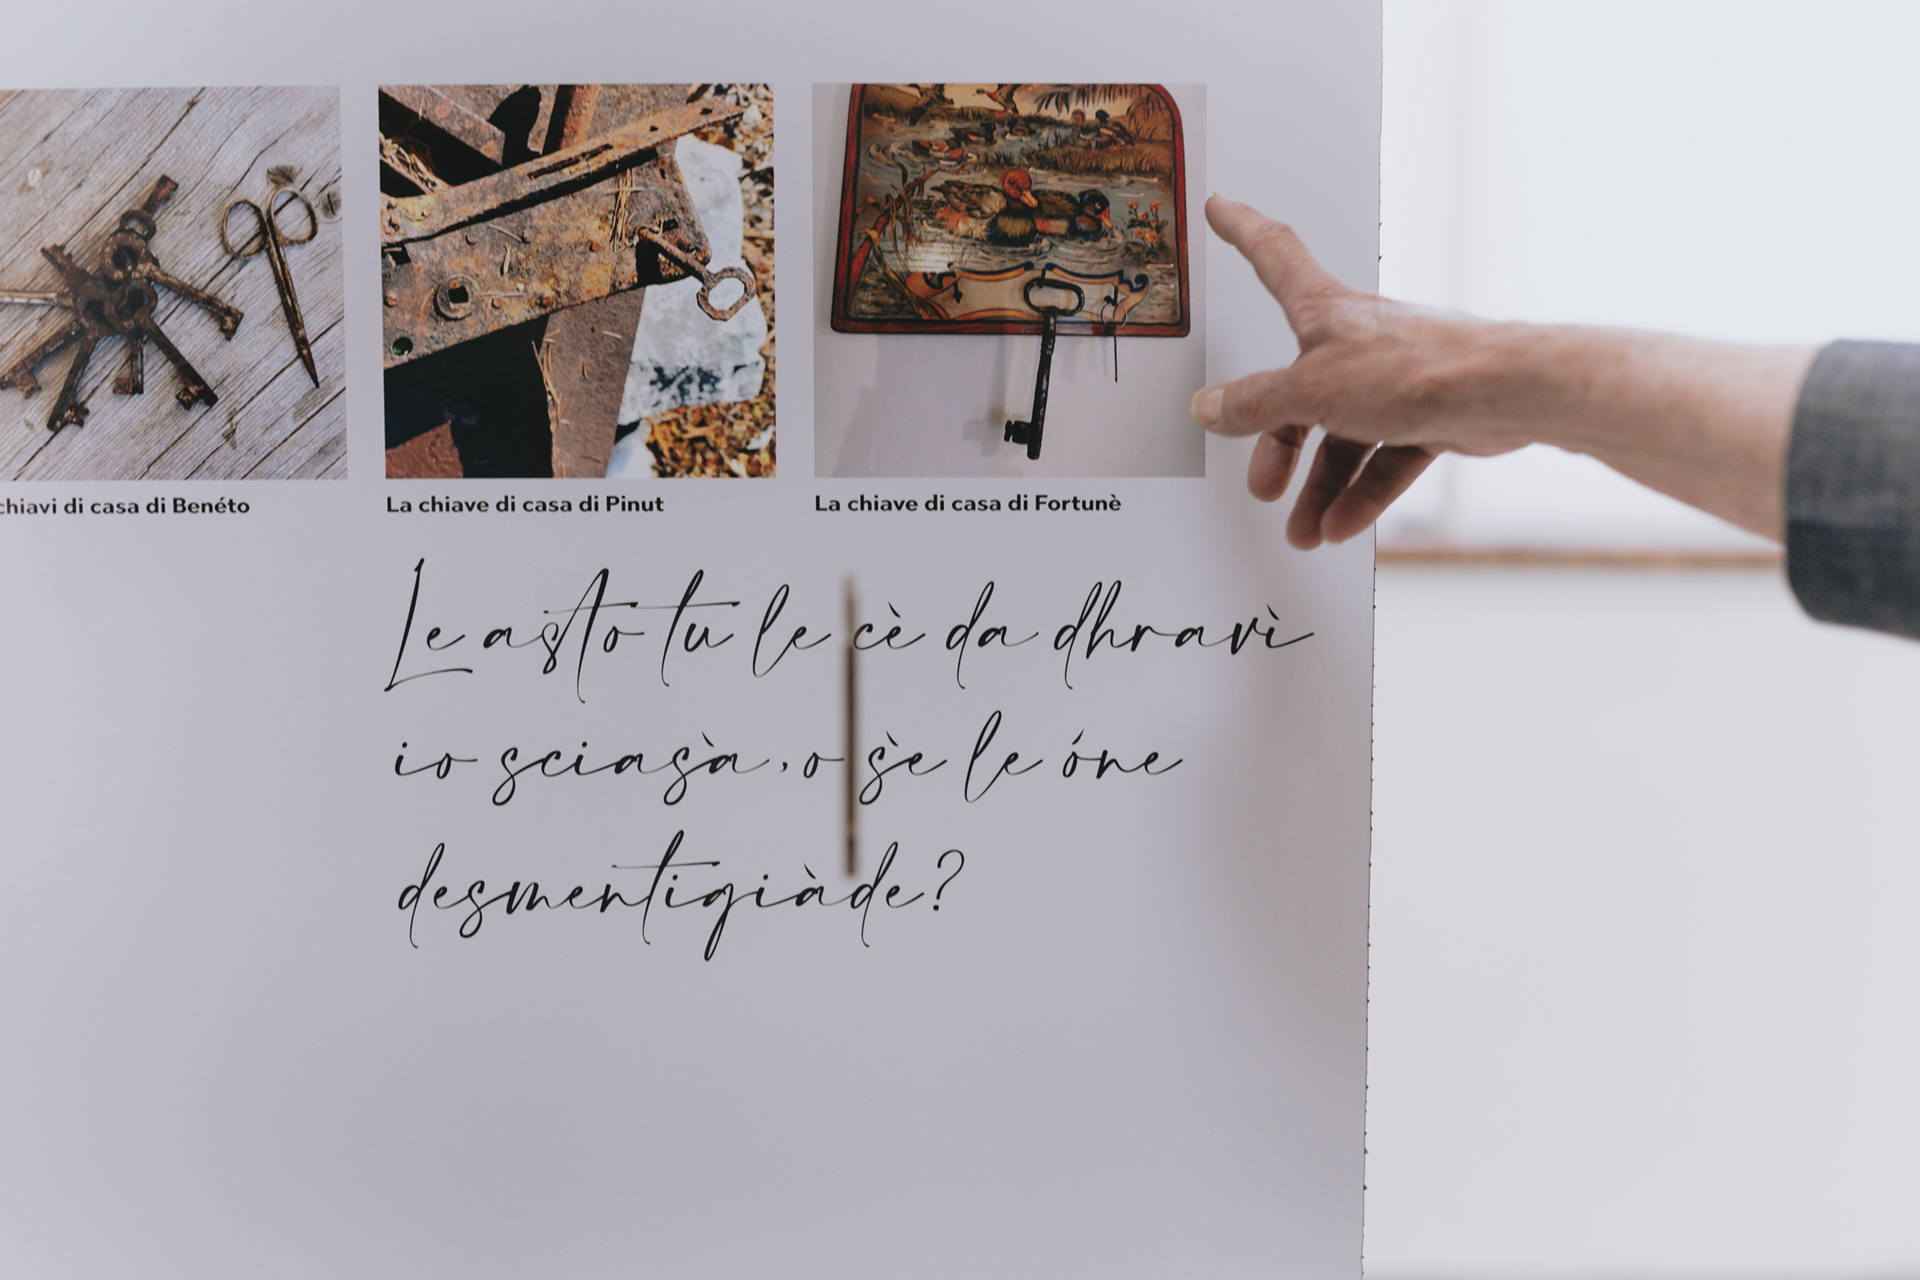 chiavi di casa di Benéto
La chiave di casa di Pinut
La chiave di casa di Fortunè
Le asto tu le cè da dhravì
io sciasà, o sè le óne
desmentigiàde?